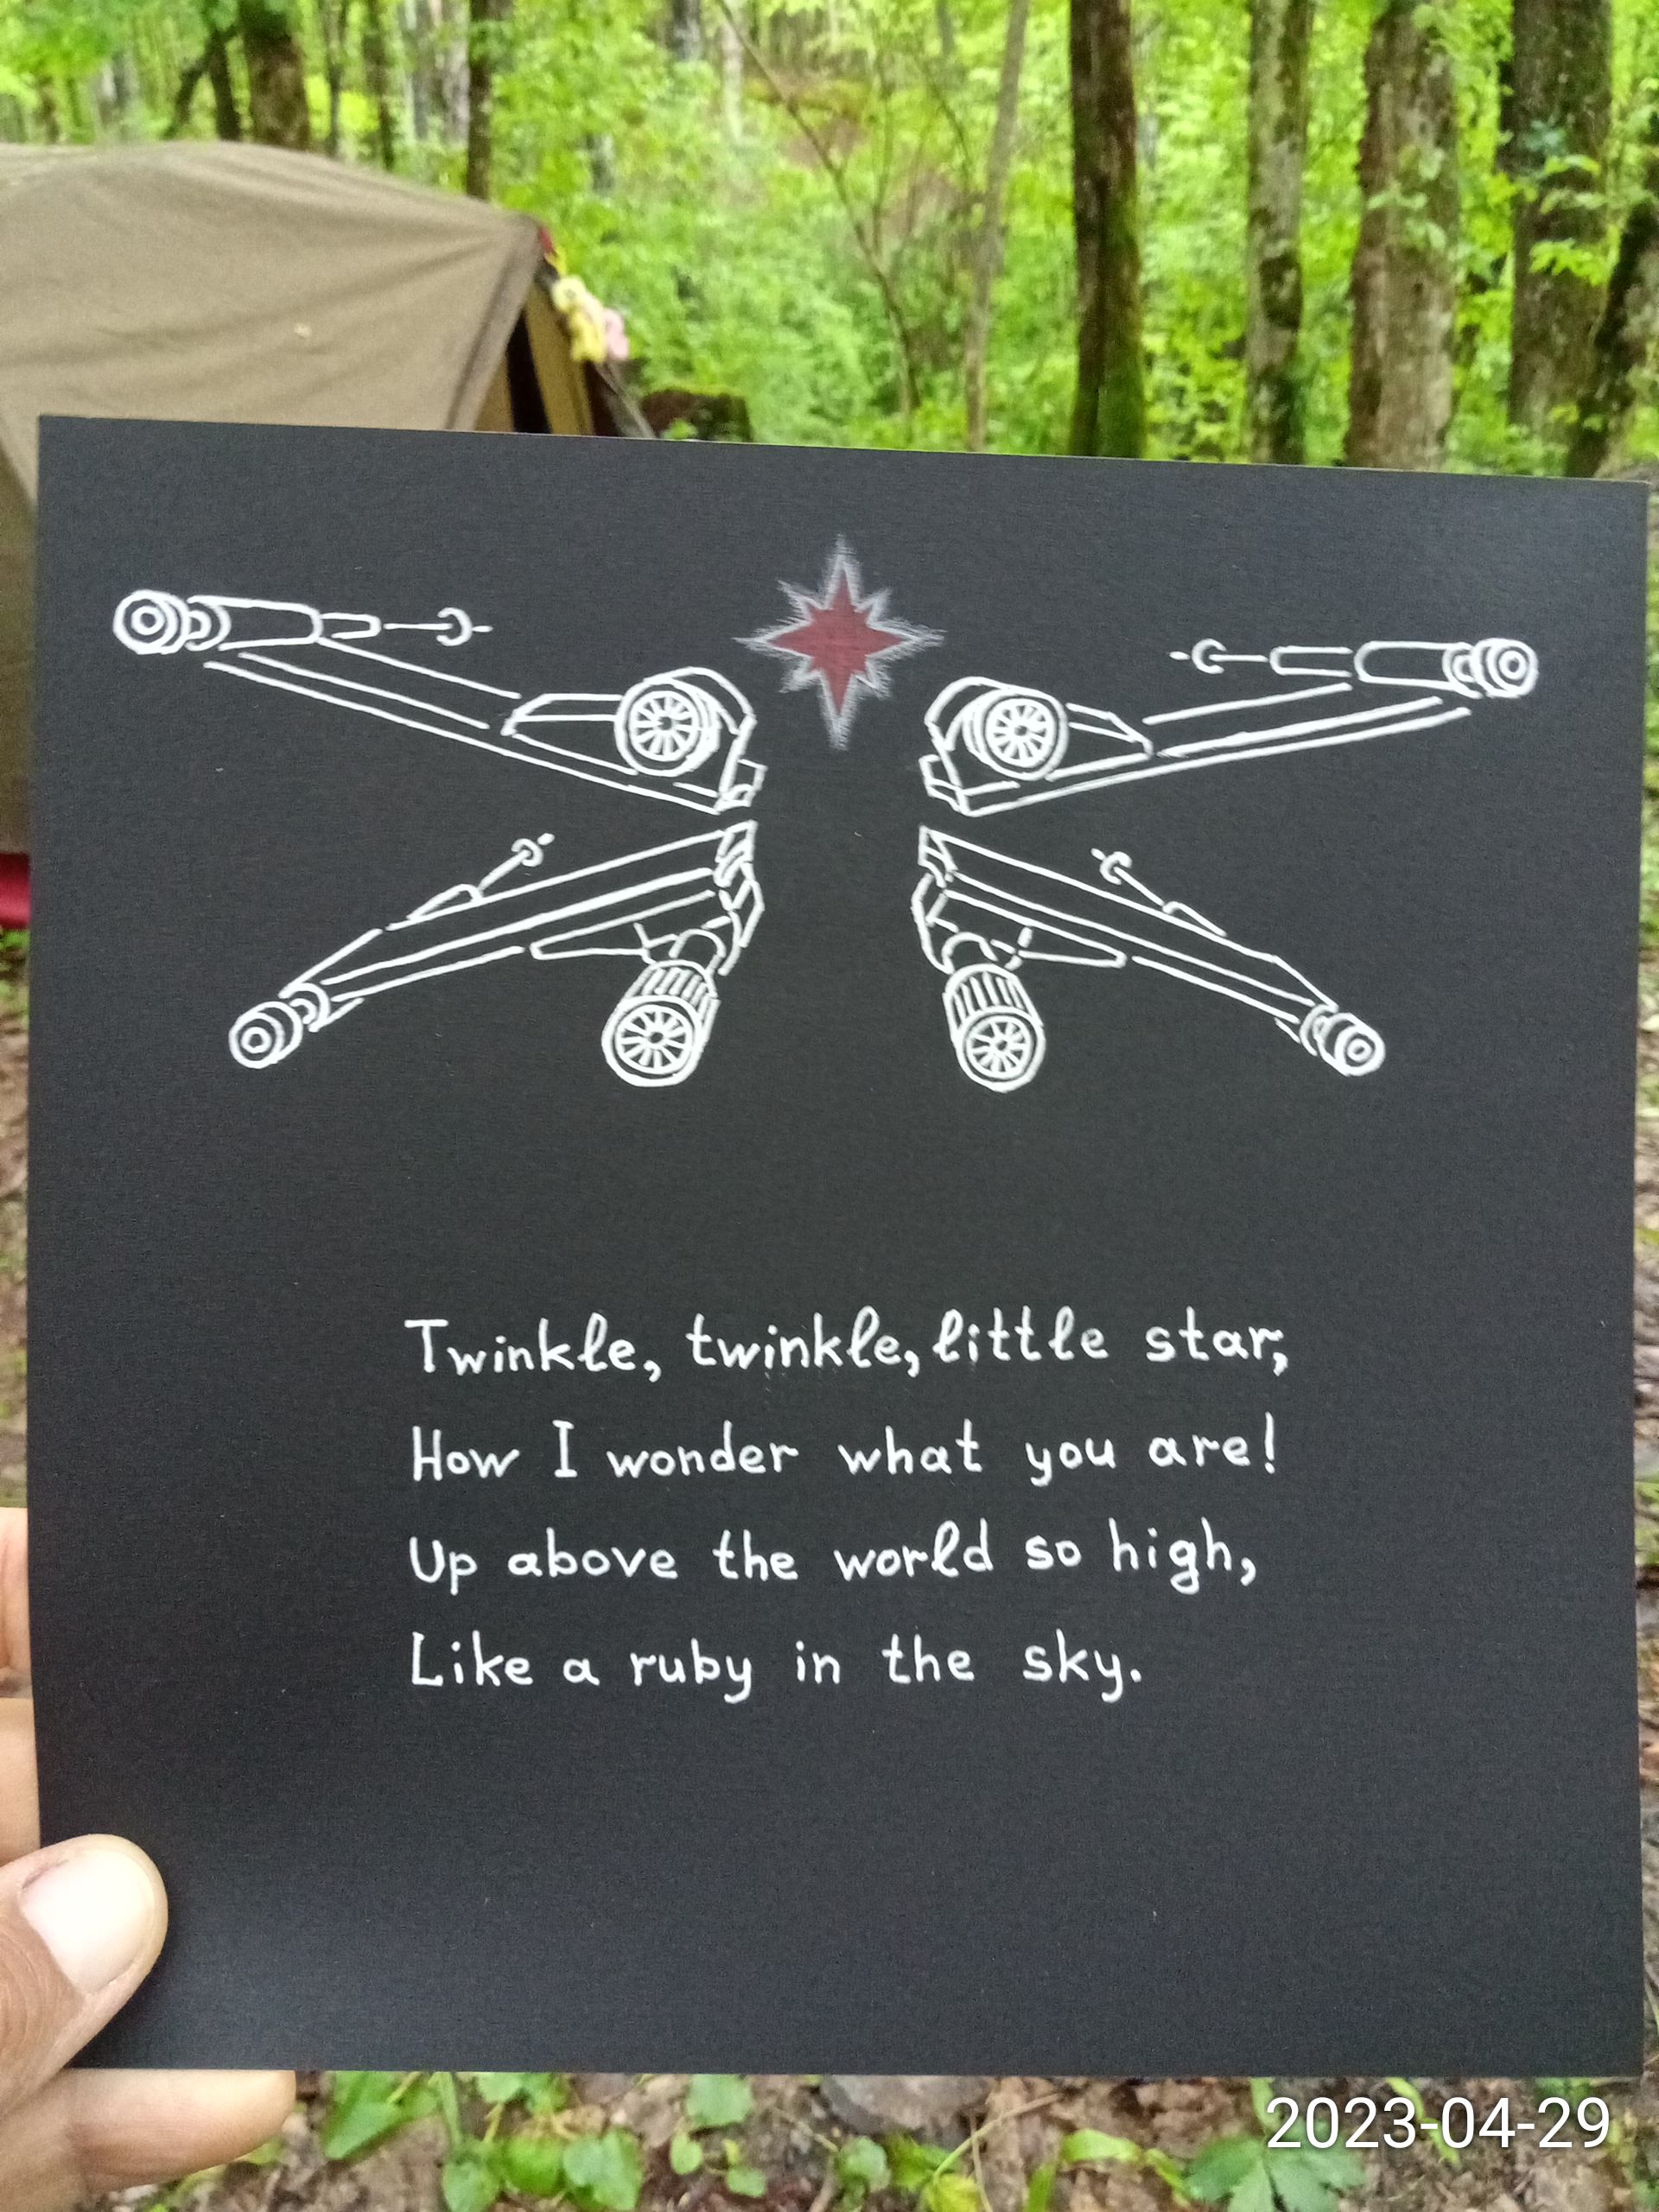 Twinkle, twinkle, little star,
How I wonder what you are!
Up above the world so high,
Like a ruby in the sky.
2023-04-29